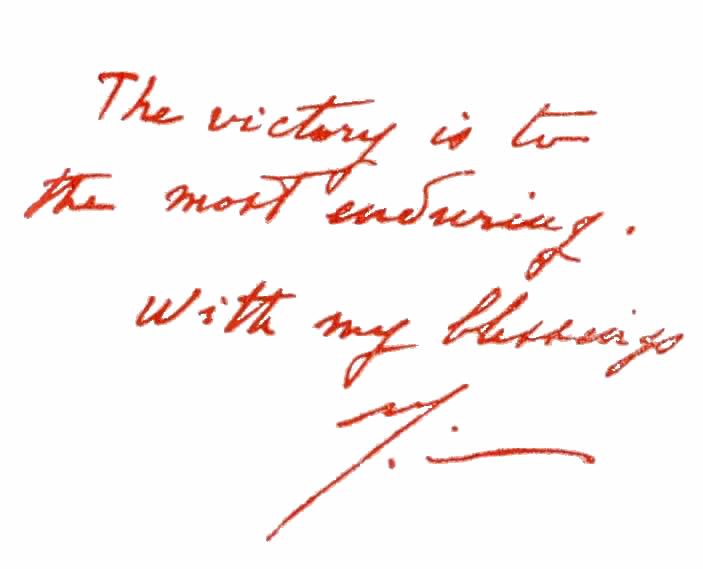 The victory is to
the most enduring.
With my blessings